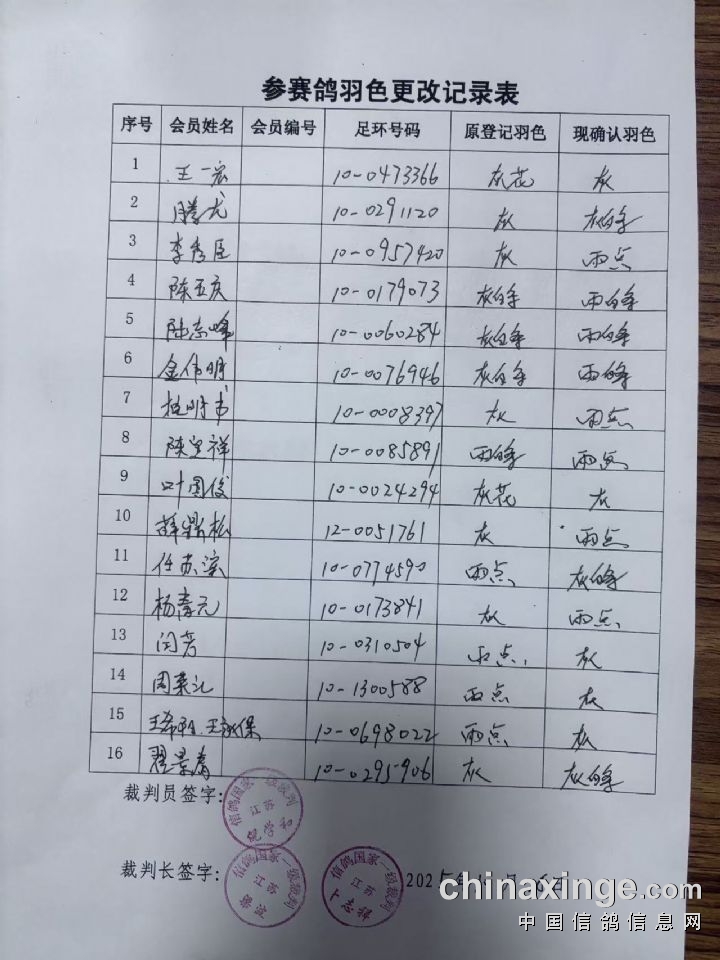 参赛鸽羽色更改记录表
序号 会员姓名 会员编号 足环号码 原登记羽色 现确认羽色
1 王一宏 10-0473366 灰花 灰
2 滕龙 10-0291120 灰 灰白条
3 李秀臣 10-0957420 灰 雨点
4 陈五庆 10-0179073 灰白条 雨白条
5 陆志峰 10-0060284 灰白条 雨白条
6 金伟明 10-0076946 灰白条 雨白条
7 杜明书 10-0008397 灰 雨点
8 陈宝祥 10-0085891 雨白条 雨点
9 叶国俊 10-0024294 灰花 灰
10 薛鼎松 12-0051761 灰 雨点
11 任苏滨 10-0774590 雨点 灰白条
12 杨寿元 10-0173841 灰 雨点
13 闵芳 10-0310504 雨点 灰
14 周荣汇 10-1300588 雨点 灰
15 10-0698022 雨点 灰
16 翟景春 10-0295906 灰 灰白条
裁判员签字:
信鸽国家一级裁判
江苏
裁判长签字:
信鸽国家一级裁判
江苏
信鸽国家一级裁判
江苏
2025年
chinaxinge.com
中国信鸽信息网